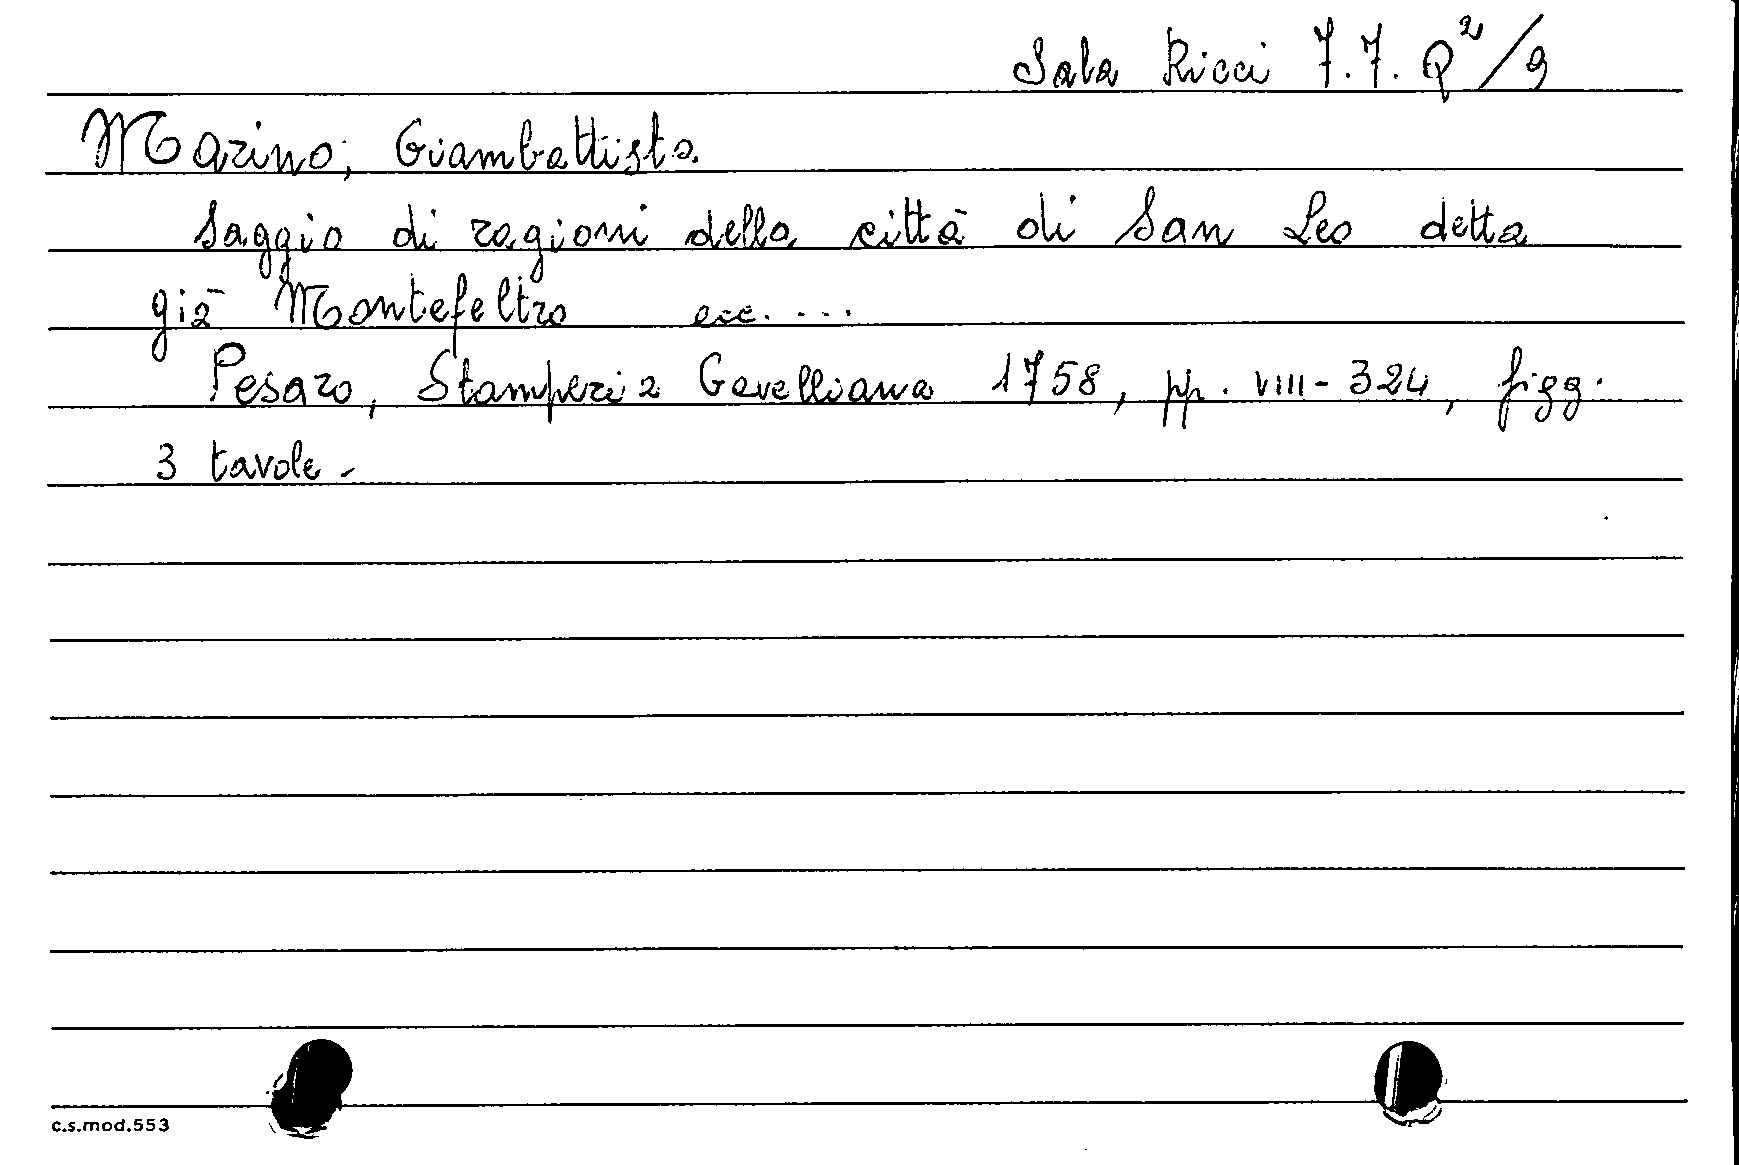 Sala Ricci 7.7. Q²/9
Marino, Giambattista
Saggio di ragioni della città di San Leo detta
già Montefeltro ecc. ...
Pesaro, Stamperia Gavelliana 1758, pp. VIII-324, figg.
3 tavole.
c.s.mod.553